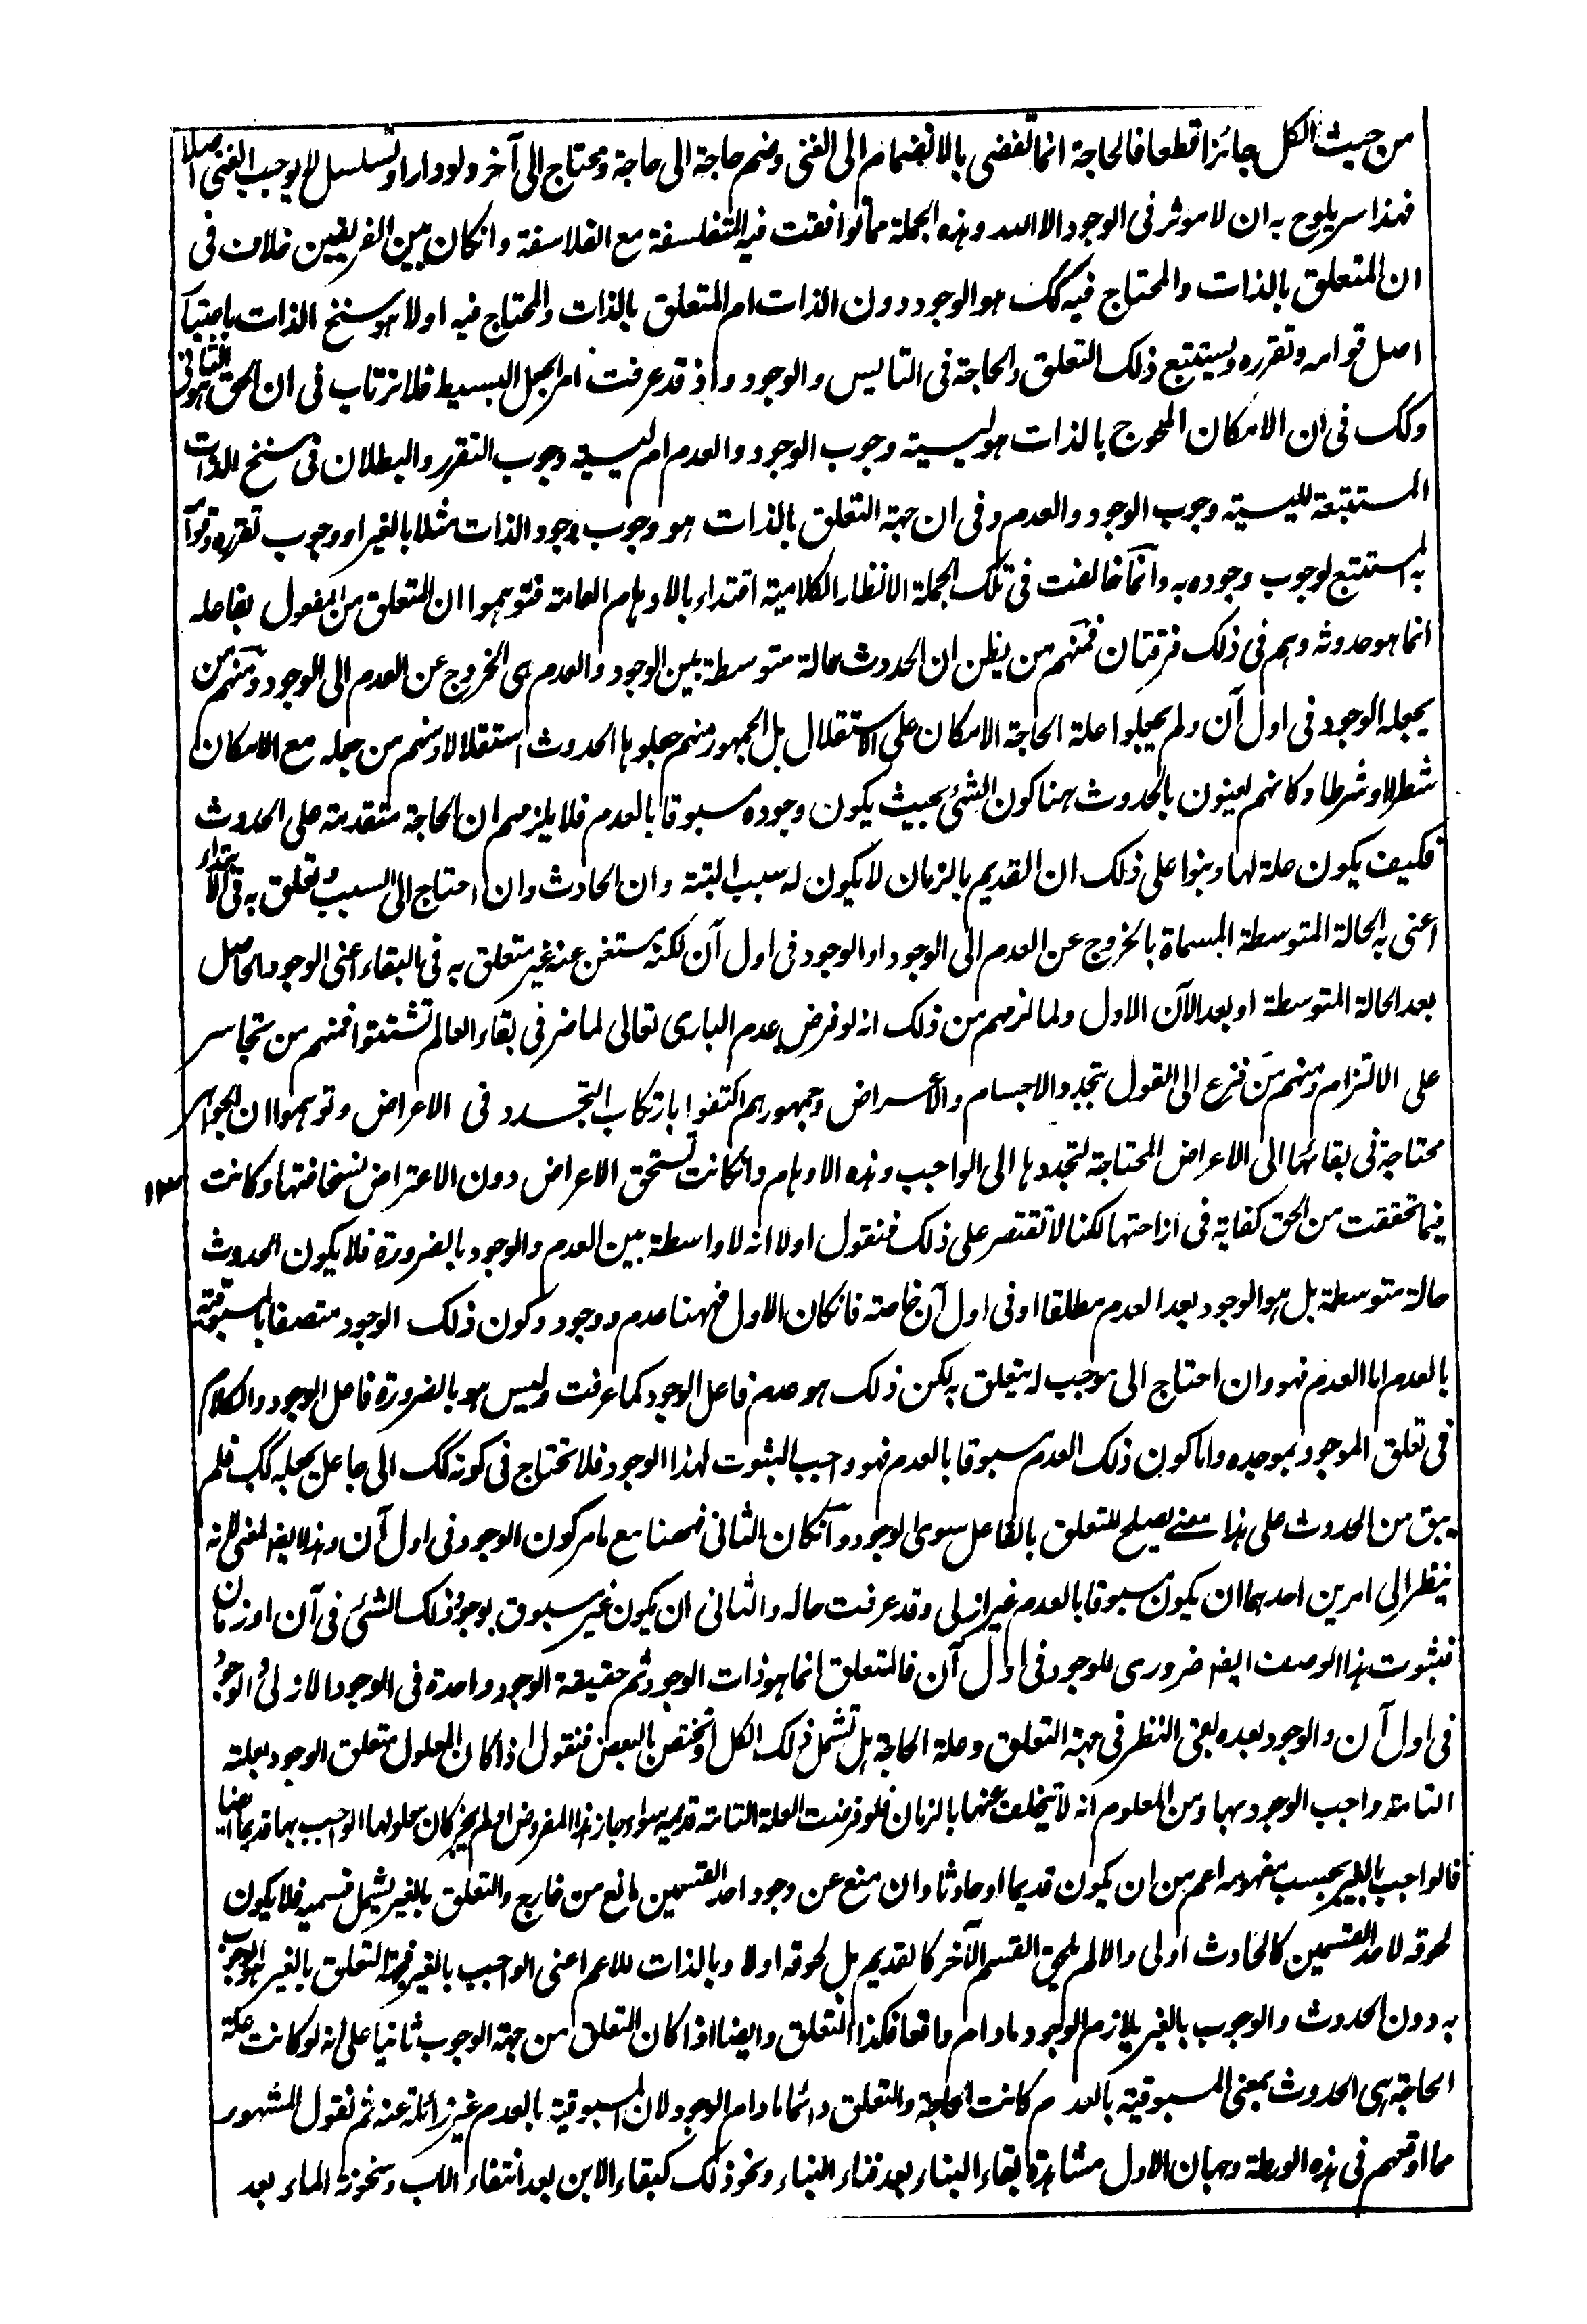 من حيث الكل جائزا قطعا فالحاجة انما تفضى بالانضمام الى الغنى وضم حاجة الى حاجة ومحتاج الى آخر ولو دارا وتسلسل لا يوجب الغنى اصلا
فهذا سر يلوح به ان لا موثر فى الوجود الا الله وهذه الجملة مما توافقت فيه المتفلسفة مع الفلاسفة وانكان بين الفريقين خلاف فى
ان المتعلق بالذات والمحتاج فيه كك هو الوجود دون الذات ام المتعلق بالذات والمحتاج فيه اولا هو سنخ الذات باعتبار
اصل قوامه وتقرره ويستتبع ذلك التعلق والحاجة فى التاليس والوجود واذ قد عرفت امر الجعل البسيط فلا نرتاب فى ان الحق هو الثانى
وكك فى ان الامكان المحوج بالذات هو ليسية وجوب الوجود والعدم ام ليسية وجوب التقرر والبطلان فى سنخ الذات
المستتبعة لليسية وجوب الوجود والعدم وفى ان جهة التعلق بالذات هو وجوب وجود الذات مثلا بالغير او وجوب تقرره وقوامه
به المستتبع لوجوب وجوده به وانما خالفت فى تلك الجملة الانظار الكلامية اقتداء بالاوهام العامة فتوهموا ان المتعلق من المفعول بفاعله
انما هو حدوثه وهم فى ذلك فرقتان فمنهم من يظن ان الحدوث حالة متوسطة بين الوجود والعدم هى الخروج عن العدم الى الوجود ومنهم من
يجعله الوجود فى اول آن ولم يجعلوا علة الحاجة الامكان على الاستقلال بل الجمهور منهم جعلوها الحدوث استقلالا ومنهم من جعله مع الامكان
شطرا او شرطا وكانهم يعنون بالحدوث ههنا كون الشئ بحيث يكون وجوده مسبوقا بالعدم فلا يلزمهم ان الحاجة متقدمة على الحدوث
فكيف يكون علة لها وبنوا على ذلك ان القديم بالزمان لا يكون له سبب البتة وان الحادث وان احتاج الى السبب وتعلق به فى الابتداء
اعنى به الحالة المتوسطة المسماة بالخروج عن العدم الى الوجود او الوجود فى اول آن لكنه مستغن عنه غير متعلق به فى البقاء اعنى الوجود الحاصل
بعد الحالة المتوسطة او بعد الآن الاول ولما لزمهم من ذلك انه لو فرض عدم البارى تعالى لما ضر فى بقاء العالم تشتتوا فمنهم من تجاسر
على الالتزام ومنهم من فزع الى القول بتجدد الاجسام والأعراض وجمهورهم اكتفوا بارتكاب التجدد فى الاعراض وتوهموا ان الجواهر
محتاجة فى بقائها الى الاعراض المحتاجة لتجددها الى الواجب وهذه الاوهام وانكانت تستحق الاعراض دون الاعتراض لسخافتها وكانت
فيما تحققت من الحق كفاية فى ازاحتها لكنا لا نقتصر على ذلك فنقول اولا انه لا واسطة بين العدم والوجود بالضرورة فلا يكون الحدوث
حالة متوسطة بل هو الوجود بعد العدم مطلقا او فى اول آن خاصة فانكان الاول فههنا عدم ووجود وكون ذلك الوجود متصفا بالمسبوقية
بالعدم اما العدم فهو وان احتاج الى موجب له يتعلق به لكن ذلك هو عدم فاعل الوجود كما عرفت وليس هو بالضرورة فاعل الوجود والكلام
فى تعلق الموجود بموجده واما كون ذلك العدم مسبوقا بالعدم فهو واجب الثبوت لهذا الوجود فلا تحتاج فى كونه كك الى جاعل يجعله كك فلم
يبق من الحدوث على هذا معنى يصلح للتعلق بالفاعل سوى الوجود وانكان الثانى فههنا مع ما مر كون الوجود فى اول آن وهذا ايضا لغى لانه
ينظر الى امرين احدهما ان يكون مسبوقا بالعدم غير ازلى وقد عرفت حاله والثانى ان يكون غير مسبوق بوجود ذلك الشئ فى آن او زمان
فثبوت هذا الوصف ايضا ضرورى للوجود فى اول آن فالمتعلق انما هو ذات الوجود ثم حقيقة الوجود واحدة فى الوجود الازلى والوجود
فى اول آن والوجود بعده بقى النظر فى جهة التعلق وعلة الحاجة هل تشمل ذلك الكل او تختص بالبعض فنقول اذا كان المعلول متعلق الوجود بعلته
التامة واجب الوجود بها ومن المعلوم انه لا يتخلف عنها بالزمان فلو فرضت العلة التامة قديمة سواء جاز هذا المفروض او لم يجز كان معلولها الواجب بها قديما ايضا
فالواجب بالغير بحسب مفهومه اعم من ان يكون قديما او حادثا وان منع عن وجود احد القسمين مانع من خارج والتعلق بالغير يشمل قسميه فلا يكون
لحوقه لاحد القسمين كالحادث اولى والا لم يلحق القسم الآخر كالقديم بل لحوقه اولا وبالذات للاعم اعنى الواجب بالغير فجهة التعلق بالغير هو الوجوب
به دون الحدوث والوجوب بالغير يلازم الوجود مادام واقعا فكذا التعلق وايضا اذا كان التعلق من جهة الوجوب ثانيا على انه لو كانت علة
الحاجة هى الحدوث بمعنى المسبوقية بالعدم كانت الحاجة والتعلق دائما مادام الوجود لان المسبوقية بالعدم غير زائلة عنه ثم نقول المشهور
مما اوقعهم فى هذه الورطة وجهان الاول مشاهدة بقاء البناء بعد فناء البناء ونحو ذلك كبقاء الابن بعد انتفاء الاب وسخونة الماء بعد